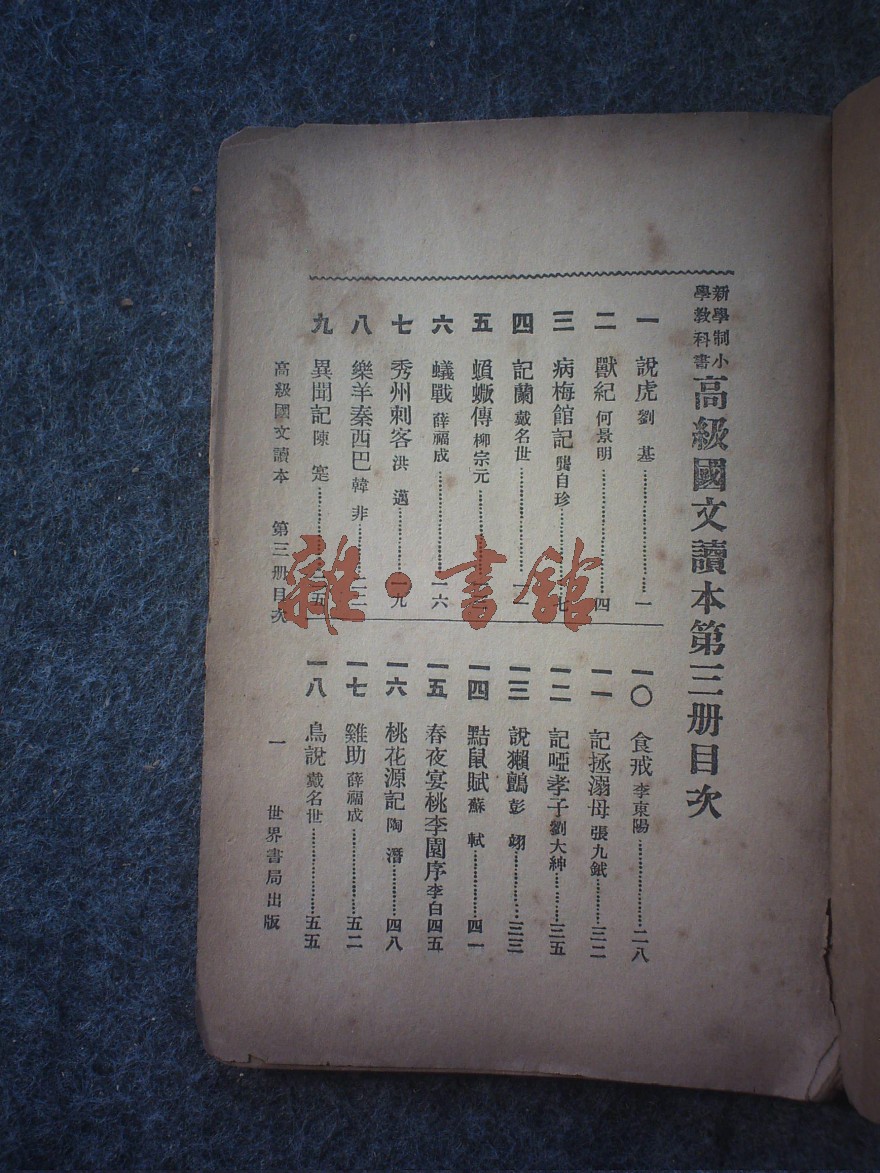 新學制小
學教科書
高級國文讀本第三册目次
一 說虎 劉基 一
二 獸紀 何景明 四
三 病梅館記 龔自珍 七
四 記蘭 戴名世
五 蝜蝂傳 柳宗元
六 蟻戰 薛福成 一六
七 秀州刺客 洪邁 一九
八 樂羊秦西巴 韓非
九 異聞記 陳寔
一〇 食戒 李東陽 二八
一一 記拯溺母 張九鉞 三二
一二 記啞孝子 劉大紳 三五
一三 說獺鷧 彭翊 三三
一四 黠鼠賦 蘇軾 四一
一五 春夜宴桃李園序 李白 四五
一六 桃花源記 陶潛 四八
一七 雞助 薛福成 五二
一八 鳥說 戴名世 五五
高級國文讀本 第三册目次 一 世界書局出版
雜·書館